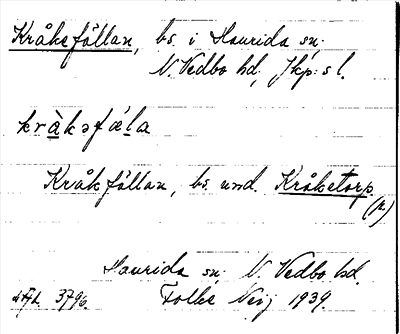 Kråkefällan, bs. i Haurida sn.
N. Vedbo hd, Jkp:s l.
kràkəfäla
Kråkfällan, bs. und. Kråketorp.
(p.)
Haurida sn. N. Vedbo hd.
Folke Neij 1939.